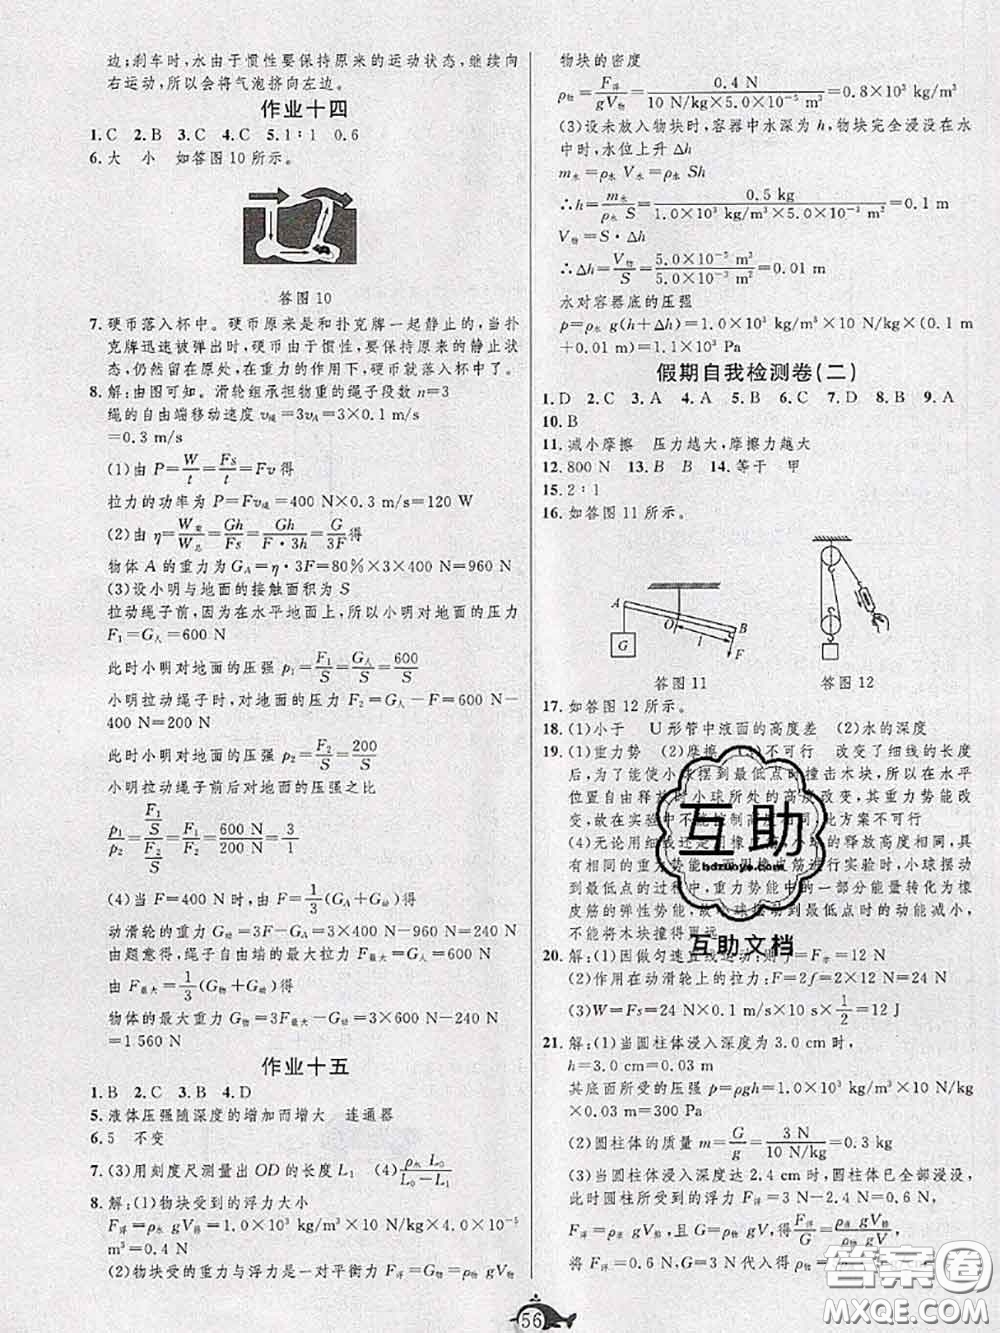 边;刹车时,水由于惯性要保持原来的运动状态,继续向
右运动,所以会将气泡挤向左边。
作业十四
1.C 2.B 3.C 4.C 5.1∶1 0.6
6.大 小 如答图10所示。
答图10
7.硬币落入杯中。硬币原来是和扑克牌一起静止的,当扑
克牌迅速被弹出时,硬币由于惯性,要保持原来的静止状
态,仍然留在原处,在重力的作用下,硬币就落入杯中了。
8.解:由图可知。滑轮组承担物重的绳子段数n=3
绳的自由端移动速度v绳=3vA=3×0.1 m/s
=0.3 m/s
(1)由P=W/t=Fs/t=Fv得
拉力的功率为P=Fv绳=400 N×0.3 m/s=120 W
(2)由η=W有/W总=Gh/Fs=Gh/(F·3h)=G/3F得
物体A的重力为GA=η·3F=80%×3×400 N=960 N
(3)设小明与地面的接触面积为S
拉动绳子前,因为在水平地面上,所以小明对地面的压力
F1=G人=600 N
此时小明对地面的压强p1=F1/S=G人/S=600/S
小明拉动绳子时,对地面的压力F2=G人-F=600 N-
400 N=200 N
此时小明对地面的压强p2=F2/S=200/S
小明拉动绳子前后对地面的压强之比
p1/p2=(F1/S)/(F2/S)=F1/F2=600 N/200 N=3/1
(4)当F=400 N时,由F=1/3(GA+G动)得
动滑轮的重力G动=3F-GA=3×400 N-960 N=240 N
由题意得,绳子自由端的最大拉力F最大=600 N
由F最大=1/3(G物+G动)得
物体的最大重力G物=3F最大-G动=3×600 N-240 N
=1 560 N
作业十五
1.B 2.C 3.B 4.D
5.液体压强随深度的增加而增大 连通器
6.5 不变
7.(3)用刻度尺测量出OD的长度L1 (4)ρ水L0/(L0-L1)
8.解:(1)物块受到的浮力大小
F浮=ρ水gV排=1.0×10³ kg/m³×10 N/kg×4.0×10⁻⁵
m³=0.4 N
(2)物块受的重力与浮力是一对平衡力F浮=G物=ρ物gV物
物块的密度
ρ物=F浮/gV物=0.4 N/(10 N/kg×5.0×10⁻⁵ m³)=0.8×10³ kg/m³
(3)设未放入物块时,容器中水深为h,物块完全浸没在水
中时,水位上升Δh
m水=ρ水V水=ρ水Sh
∴h=m水/ρ水S=0.5 kg/(1.0×10³ kg/m³×5.0×10⁻³ m²)=0.1 m
V物=S·Δh
∴Δh=V物/S=5.0×10⁻⁵ m³/5.0×10⁻³ m²=0.01 m
水对容器底的压强
p=ρ水g(h+Δh)=1.0×10³ kg/m³×10 N/kg×(0.1 m
+0.01 m)=1.1×10³ Pa
假期自我检测卷(二)
1.D 2.C 3.A 4.A 5.B 6.C 7.D 8.B 9.A
10.B
11.减小摩擦 压力越大,摩擦力越大
12.800 N 13.B B 14.等于 甲
15.2∶1
16.如答图11所示。
A O B G l F
答图11 答图12
17.如答图12所示。
18.(1)小于 U形管中液面的高度差 (2)水的深度
19.(1)重力势 (2)摩擦 (3)不可行 改变了细线的长度
后,为了能使小球摆到最低点时撞击木块,所以在水平
位置自由释放时小球所处的高度改变,其重力势能改
变,故在实验中不能控制高度相同,此方案不可行
(4)无论用细线还是用橡皮筋,小球的释放高度相同,具
有相同的重力势能,而用橡皮筋进行实验时,小球摆动
到最低点的过程中,重力势能中的一部分能量转化为橡
皮筋的弹性势能,故小球摆动到最低点时的动能减小,
不能将木块撞得更远
20.解:(1)因做匀速直线运动;则f=F示=12 N
(2)作用在动滑轮上的拉力:F=2f=2×12 N=24 N
(3)W=Fs=24 N×1/2=12 J
21.解:(1)当圆柱体浸入深度为3.0 cm时,
h=3.0 cm=0.03 m
其底面所受的压强p=ρgh=1.0×10³ kg/m³×10 N/kg
×0.03 m=300 Pa
(2)圆柱体的质量m=G/g=3 N/(10 N/kg)=0.3 kg
(3)当圆柱体浸入深度达2.4 cm时,圆柱体已全部浸没,
此时圆柱所受到的浮力F浮=3 N-2.4 N=0.6 N,
F浮=ρ液gV排,且G=ρ物gV,得F浮/G=ρ液gV排/ρ物gV物,
将F浮=0.6 N、G=3 N代入得
互助
hdzuoye.com
互助文档
答案圈
MXQE.COM
56